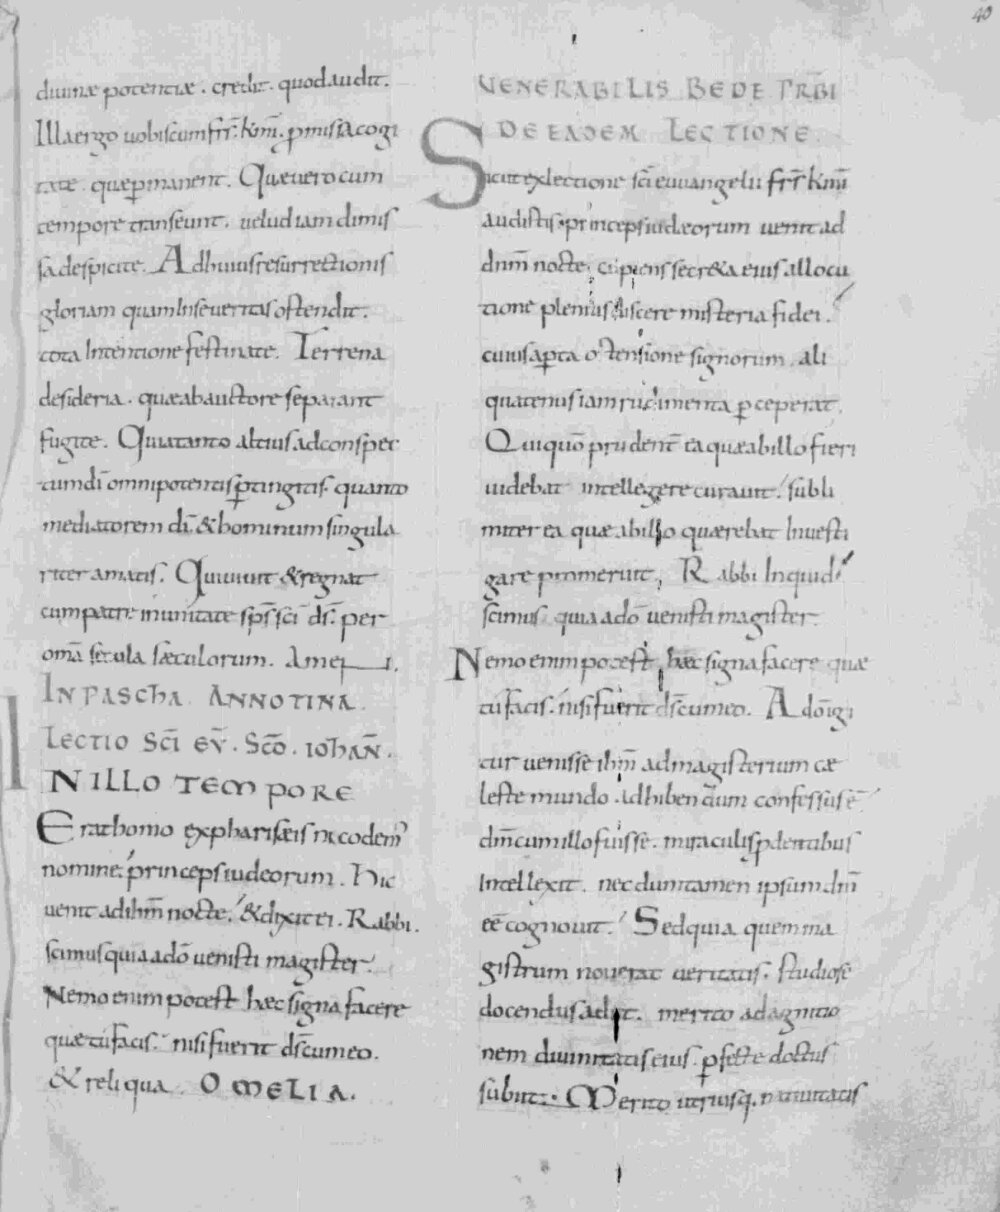 40
diuinæ potentiæ. credit. quod audit.
Illa ergo uobiscum fr̄r. km̄. p̱misi acogi
tate. quæ p̱manent. Quæ uero cum
tempore transeunt. uelud iam dimis
sa despicite. Ad huius resurrectionis
gloriam quam In se ueritas ostendit.
tota Intentione festinate. Terrena
desideria. quæ ab auctore separant
fugite. Quia tanto altius ad conspec
tum dī omnipotentis p̱tingitis. quanto
mediatorem dī. & hominum singula
riter amatis. Qui uiuit & regnat
cum patre in unitate sps̄ sc̄i ds̄. per
om̄a secula sæculorum. Amen.
IN PASCHA ANNOTINA.
LECTIO SC̄I EV̄. SC̄D. IOHAN̄.
IN ILLO TEMPORE
Erat homo ex pharisæis nicodem'
nomine. princeps iudeorum. Hic
uenit ad ihm̄ nocte. & dixit ei. Rabbi.
scimus quia a dō uenisti magister.
Nemo enim potest hæc signa facere
quæ tu facis. nisi fuerit ds̄ cum eo.
& reliqua. OMELIA.
VENERABILIS BEDE PR̄BI
DE EADEM LECTIONE.
Sicut ex lectione sc̄i euuangelii fr̄r km̄i
audistis. princeps iudeorum uenit ad
dnm̄ nocte. cupiens secr&a eius allocu
tione plenius discere misteria fidei.
cuius ap̱ta ostensione signorum. ali
quatenus iam rudimenta p̱ceperat.
Qui quō prudent̄ ea quæ ab illo fieri
uidebat intellegere curauit. subli
miter ea quæ ab illo quærebat Inuesti
gare promeruit. Rabbi Inquid.
scimus quia a dō uenisti magister.
Nemo enim potest hæc signa facere quæ
tu facis. nisi fuerit ds̄ cum eo. A dō igi
tur uenisse ihm̄ ad magisterium cæ
leste mundo adhibendum confessus ē
dm̄ cum illo fuisse. miraculis p̱dentibus
Intellexit. nec dum tamen ipsum dm̄
eē cognouit. Sed quia quem ma
gistrum nouerat ueritatis. studiose
docendus adiit. merito ad agnitio
nem diuinitatis eius. p̱fecte doctus
subiit. Merito utriusq. natiuitatis